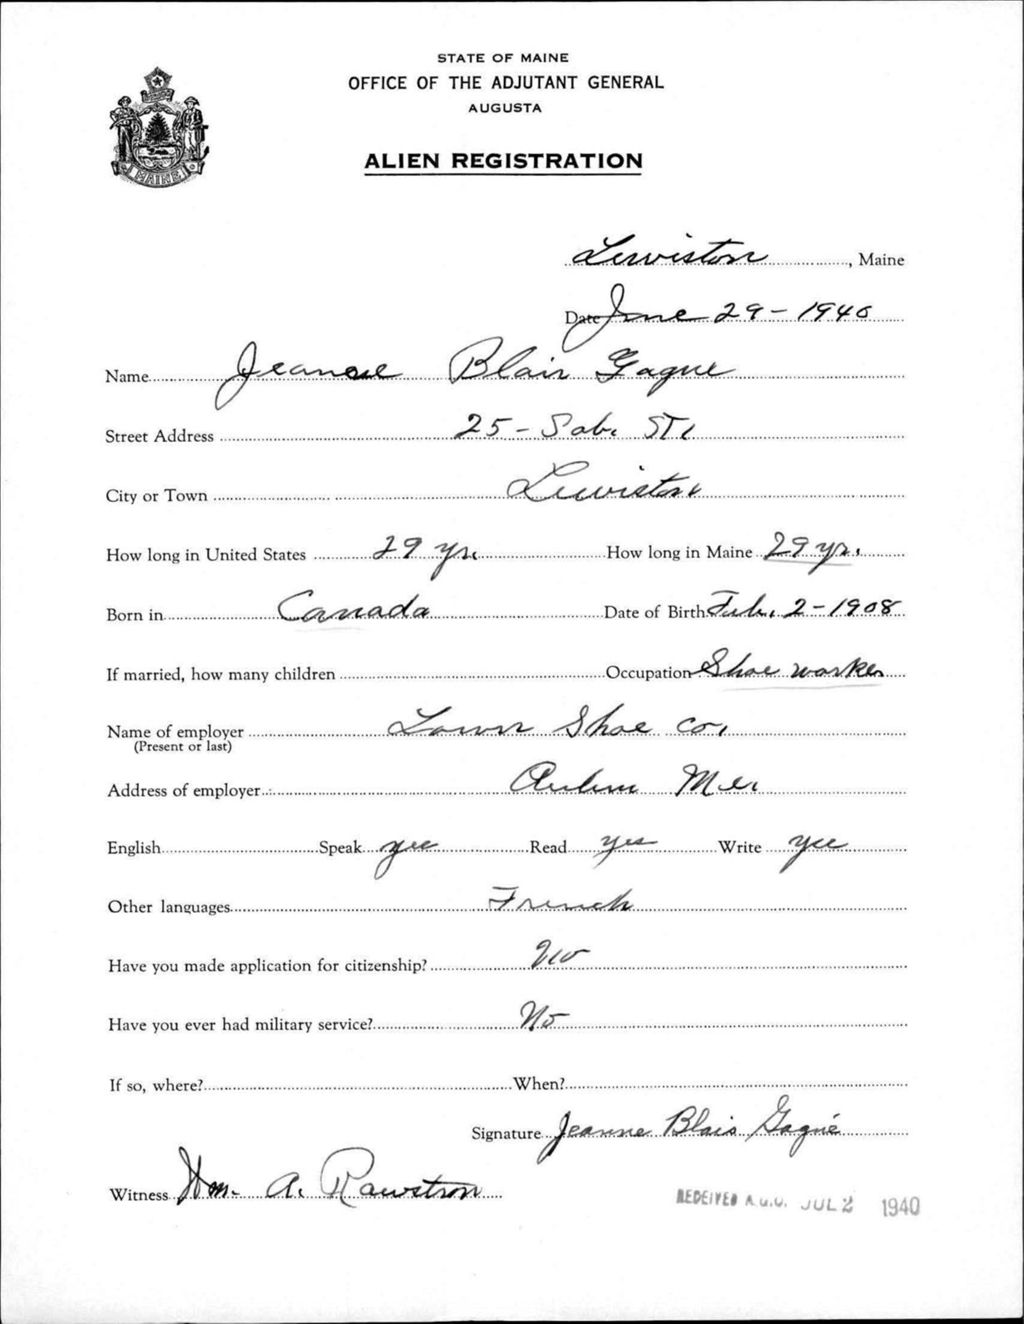 STATE OF MAINE
OFFICE OF THE ADJUTANT GENERAL
AUGUSTA
MAINE
ALIEN REGISTRATION
Lewiston, Maine
Date June 29 - 1940
Name Jeanne Blair Gagne
Street Address 25 - Sab. St.
City or Town Lewiston
How long in United States 29 yrs. How long in Maine 29 yr.
Born in Canada Date of Birth Feb. 2 - 1908
If married, how many children Occupation Shoe worker
Name of employer Lown Shoe Co.
(Present or last)
Address of employer Auburn Me.
English Speak yes Read yes Write yes
Other languages French
Have you made application for citizenship? No
Have you ever had military service? No
If so, where? When?
Signature Jeanne Blais Gagné
Witness Wm. A. Rawstron
RECEIVED A.G.O. JUL 2 1940